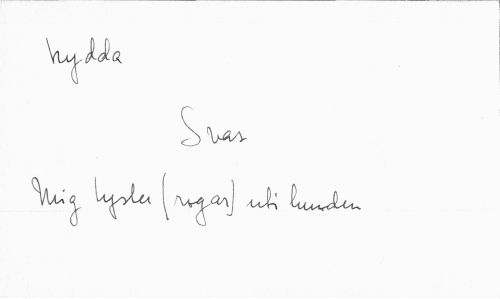 hydda
Svar
Mig lyster (rogar) uti lunden